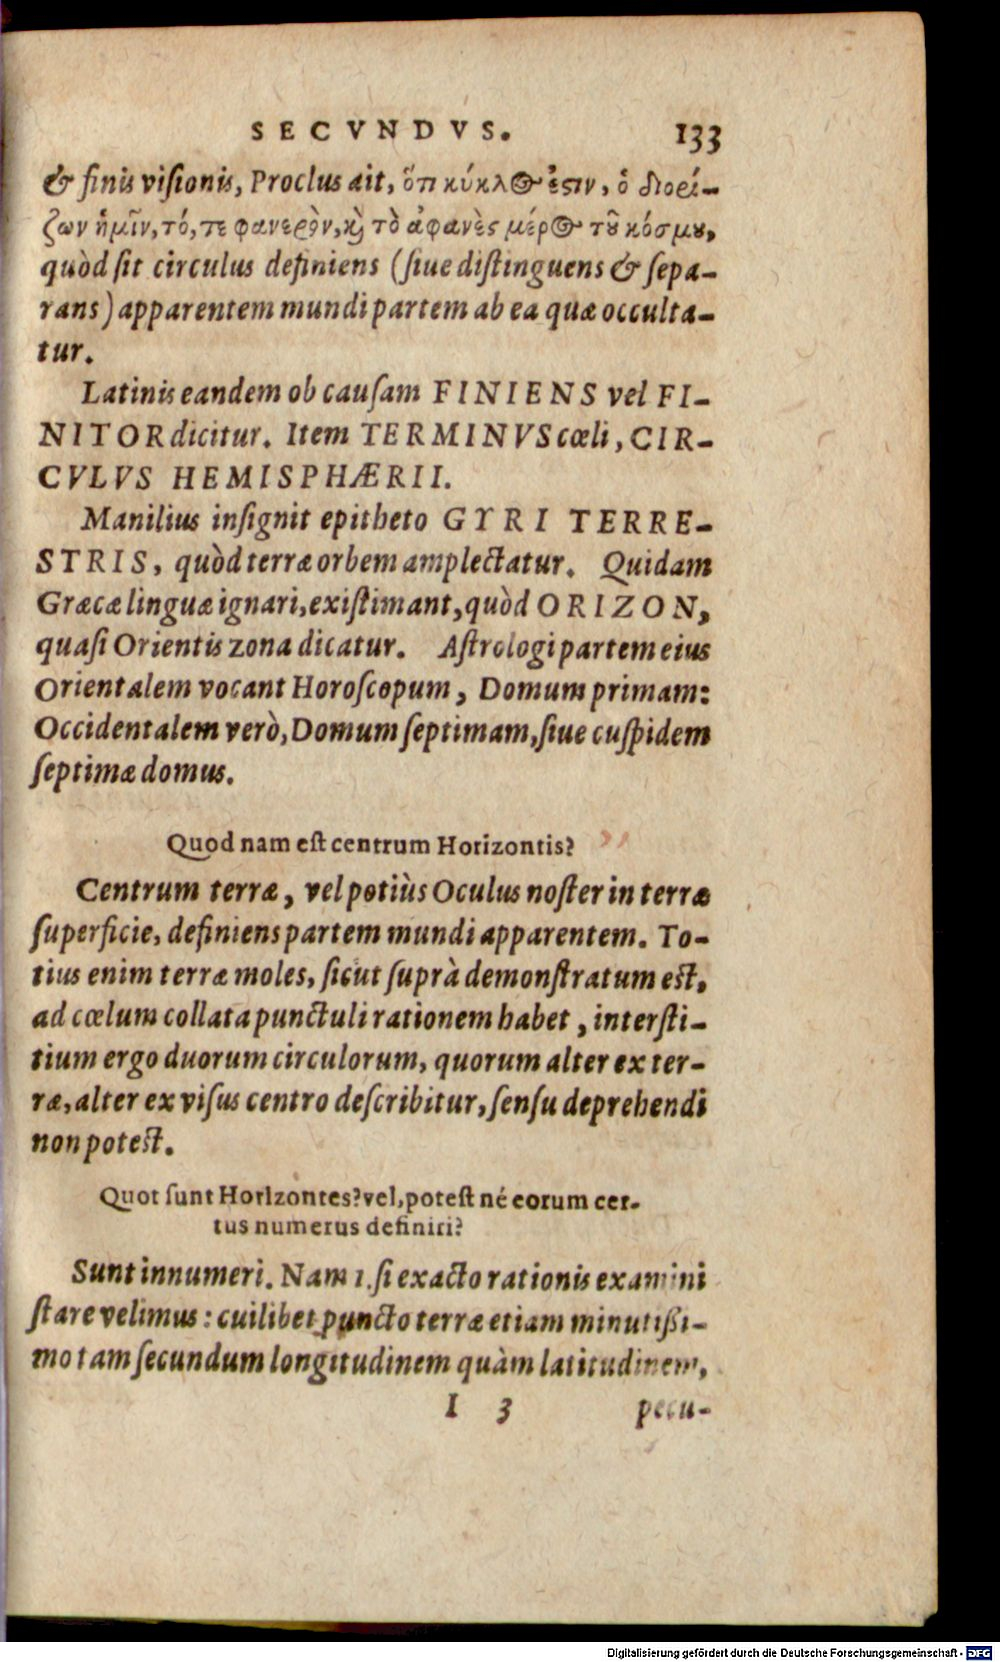 SECVNDVS. 133
& finis viſionis, Proclus ait, ὅτι κύκλος ἐστιν, ὁ διορί-
ζων ἡμῖν, τό, τε φανερὸν, κὶ τὸ ἀφανὲς μέρος τοῦ κόσμου,
quòd ſit circulus definiens (ſiue diſtinguens & ſepa-
rans) apparentem mundi partem ab ea quæ occulta-
tur.
Latinis eandem ob cauſam FINIENS vel FI-
NITOR dicitur. Item TERMINVS cœli, CIR-
CVLVS HEMISPHÆRII.
Manilius inſignit epitheto GYRI TERRE-
STRIS, quòd terræ orbem amplectatur. Quidam
Græcæ linguæ ignari, exiſtimant, quòd ORIZON,
quaſi Orientis zona dicatur. Aſtrologi partem eius
Orientalem vocant Horoſcopum, Domum primam:
Occidentalem verò, Domum ſeptimam, ſiue cuſpidem
ſeptimæ domus.
Quod nam eſt centrum Horizontis?
Centrum terræ, vel potiùs Oculus noſter in terræ
ſuperficie, definiens partem mundi apparentem. To-
tius enim terræ moles, ſicut ſuprà demonſtratum eſt,
ad cœlum collata punctuli rationem habet, interſti-
tium ergo duorum circulorum, quorum alter ex ter-
ræ, alter ex viſus centro deſcribitur, ſenſu deprehendi
non poteſt.
Quot ſunt Horizontes? vel, poteſt né eorum cer-
tus numerus definiri?
Sunt innumeri. Nam 1. ſi exacto rationis examini
ſtare velimus: cuilibet puncto terræ etiam minutißi-
mo tam ſecundum longitudinem quàm latitudinem,
I 3 pecu-
Digitalisierung gefördert durch die Deutsche Forschungsgemeinschaft - DFG